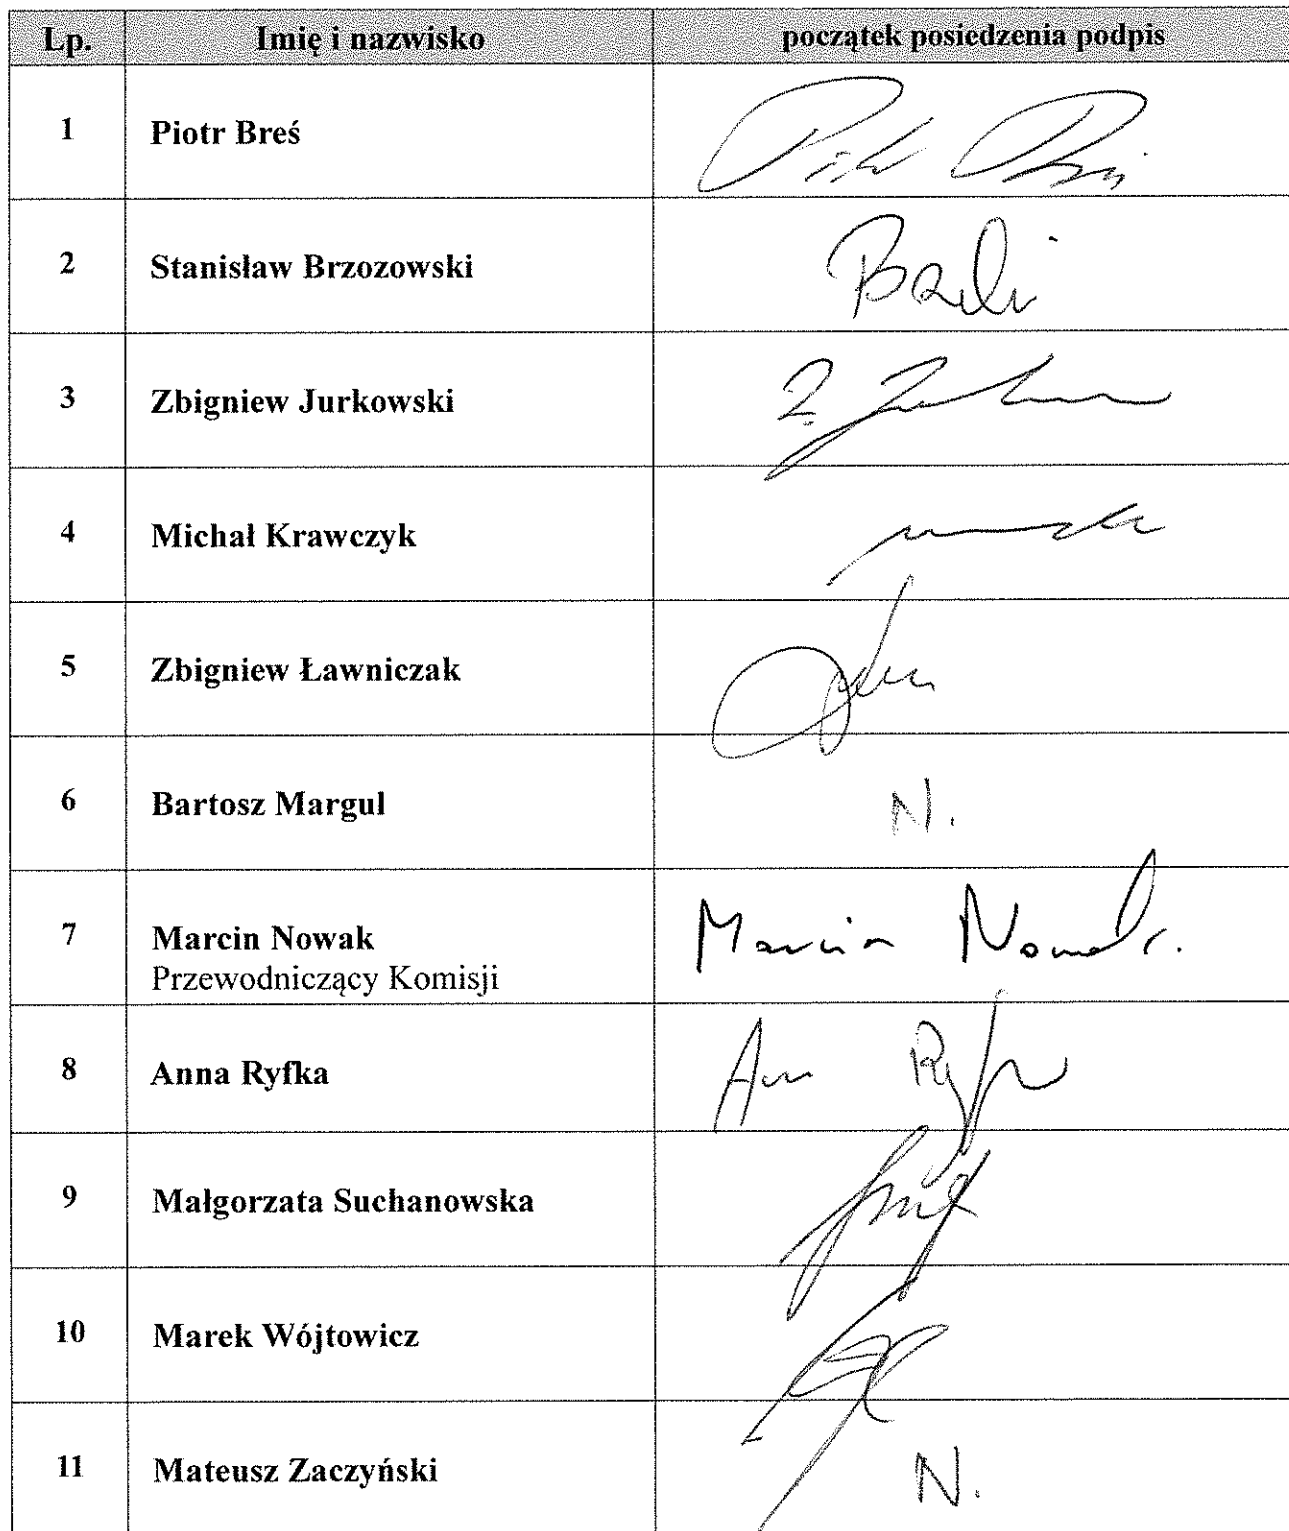 Lp. Imię i nazwisko początek posiedzenia podpis
1 Piotr Breś
2 Stanisław Brzozowski
3 Zbigniew Jurkowski
4 Michał Krawczyk
5 Zbigniew Ławniczak
6 Bartosz Margul N.
7 Marcin Nowak Marcin Nowak.
Przewodniczący Komisji
8 Anna Ryfka
9 Małgorzata Suchanowska
10 Marek Wójtowicz
11 Mateusz Zaczyński N.